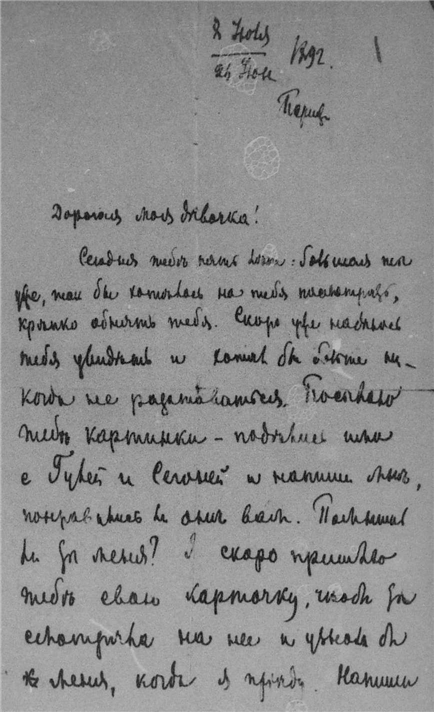 8 Июля
26 Июн 1892.
Париж
Дорогая моя дѣвочка!
Сегодня тебѣ пять : большая ты
уже, так бы хотѣлось на тебя посмотрѣть,
крѣпко обнять тебя. Скоро уже надѣюсь
тебя увидѣть и бы больше ни-
когда не разставаться. Посылаю
тебѣ картинки – подѣлись ими
с и и напиши мнѣ,
понравились ли онѣ вам. Помнишь
ли ты меня? Я скоро пришлю
тебѣ свою карточку, чтоб ты
смотрѣла на нее и узнала бы
меня, когда я пріѣду. Напиши